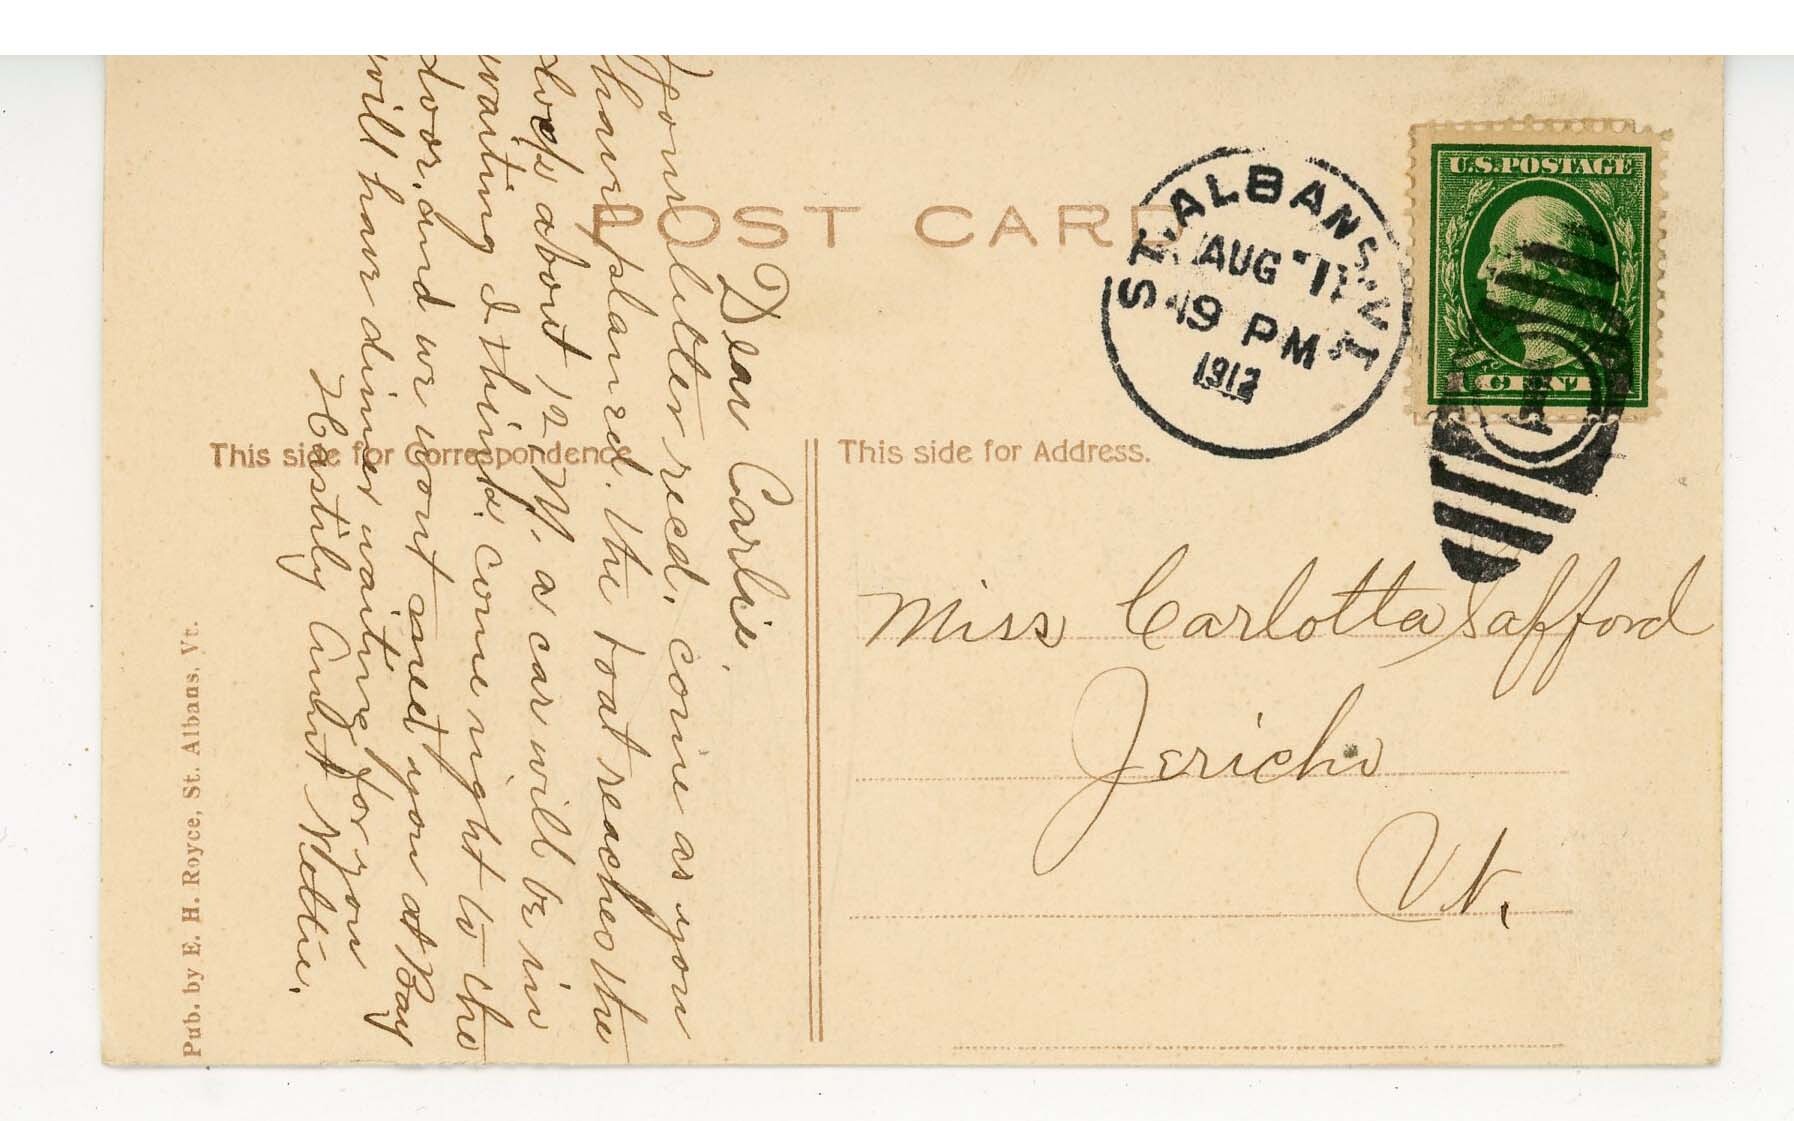 POST CARD
ST. ALBANS, VT.
AUG
9 PM
1912
U.S. POSTAGE
CENT
1
This side for Correspondence
This side for Address.
Dear Carlie.
Your letter recd. come as you
have planned. the boat reaches the
docks about 12 M. a car will be in
waiting I think. come right to the
door, and we wont meet you at Bay
will have dinner waiting for you
Hastily Aunt Nettie.
Miss Carlotta Safford
Jericho
Vt.
Pub. by E. H. Royce, St. Albans, Vt.